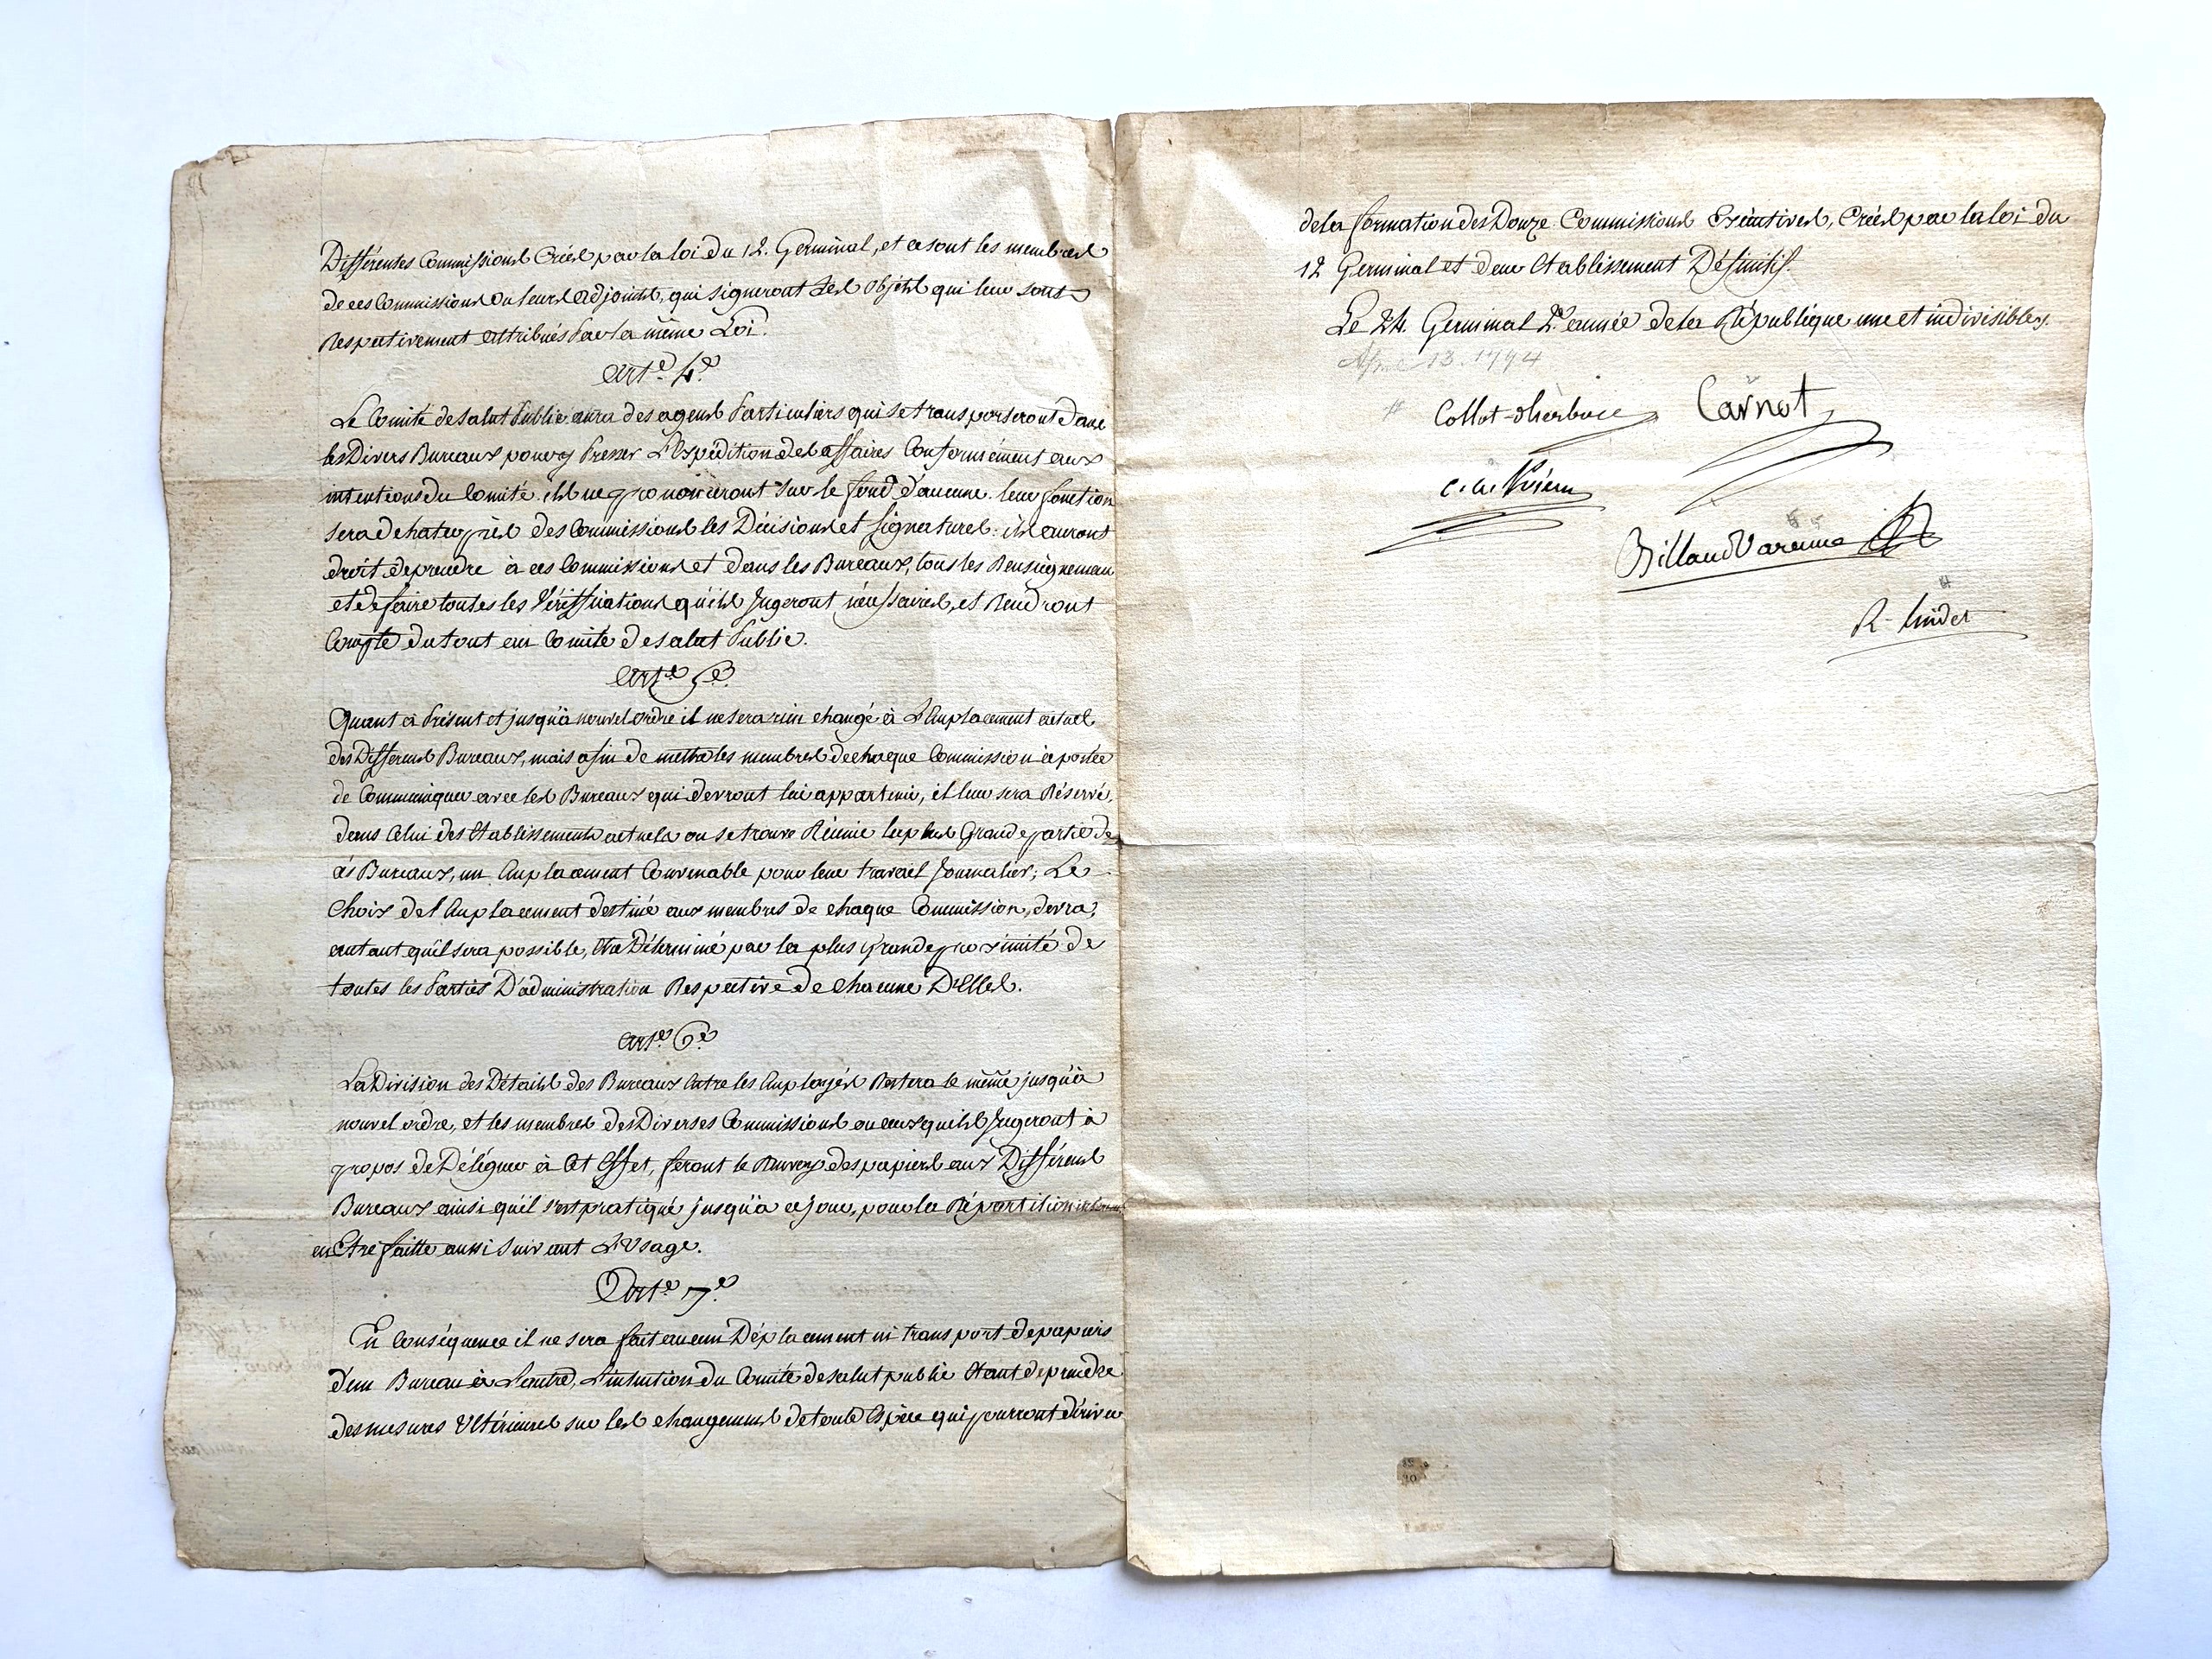 Différentes Commissions Créés par la loi du 12. Germinal, et ce sont les membres
de ces Commissions ou leurs adjoints, qui signeront les objets qui leur sont
Respectivement attribués Par la même Loi.
art.e 4.e
Le Comité de salut Public aura des agens Particuliers qui se transporseront dans
les Divers Bureaux pour y Presser L'Expédition des affaires Conformément aux
intentions du Comité. ils ne prononceront sur le fond d'aucune. leur fonction
sera de hater près des Commissions les Décisions et signatures: ils auront
droit de prendre à ces Commissions et dans les Bureaux, tous les Renseignemens
et de faire toutes les Vériffications qu'ils Jugeront nécessaires, et Rendront
Compte du tout au Comité de salut Public.
Art.e 5.e
Quant à Présent et jusqu'à nouvel ordre il ne sera rien changé à L'Emplacement actuel
des Différens Bureaux, mais afin de mettre les membres de chaque Commission à portée
de Communiquer avec les Bureaux qui devront lui appartenir, il leur sera Réservé,
dans Celui des Etablissements actuels ou se trouve Réunie la plus Grande partie de
ces Bureaux, un Emplacement Convenable pour leur travail Journalier; Le
Choix de l'Emplacement destiné aux membres de chaque Commission, devra,
autant qu'il sera possible, Etre Déterminé par la plus Grande proximité de
toutes les Parties D'administration Respective de Chacune D'Elles.
art.e 6.e
La Division des Détails des Bureaux Entre les Employés Restera la même jusqu'à
nouvel ordre, et les membres des Diverses Commissions ou ceux qu'ils Jugeront à
propos de Déléguer à Cet Effet, feront le Renvoy des papiers aux Différens
Bureaux ainsi qu'il s'est pratiqué jusqu'à ce jour, pour la Répartition
en Etre faitte aussi suivant L'Usage.
Art.e 7.e
En Conséquence il ne sera fait aucun Déplacement ni transport de papiers
d'un Bureau à L'autre, L'intention du Comité de salut public Etant de prendre
des mesures Ultérieures sur les changemens de toute Espèce qui pourront dériver
de la formation des Douze Commissions Exécutives, Créés par la loi du
12 Germinal et de leur Etablissement Définitif.
Le 24. Germinal 2.e année de la République une et indivisible.
April 13. 1794
Collot-d'herbois Carnot
C. a. Prieur
Billaud Varenne
R. Lindet